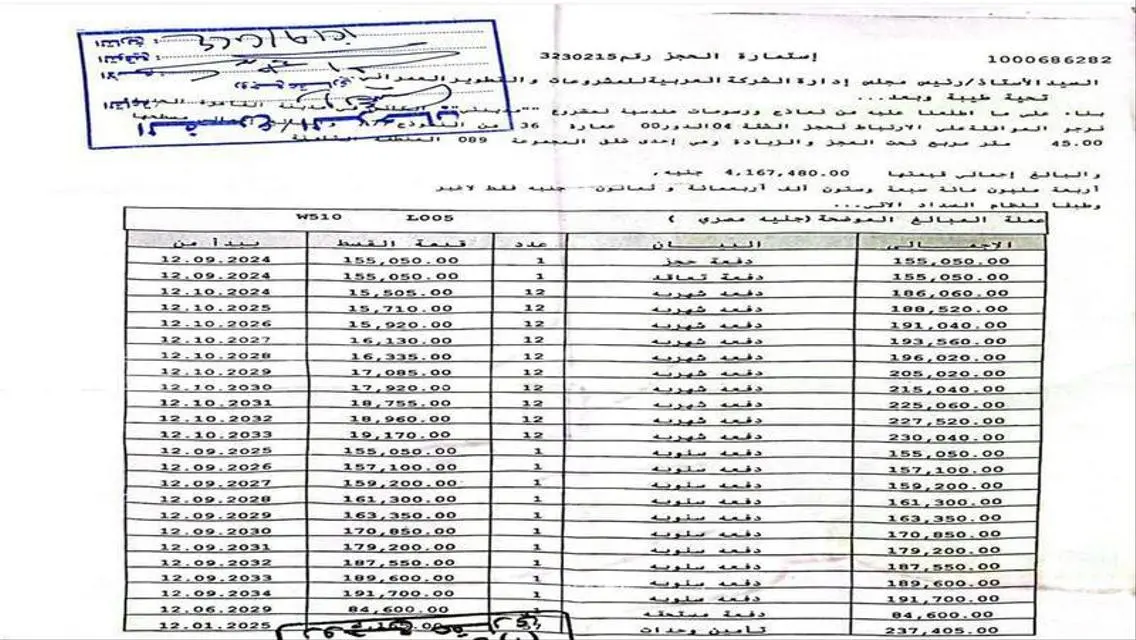 1000686282 إستمارة الحجز رقم 3230215
السيد الأستاذ/رئيس مجلس إدارة الشركة العربية للمشروعات والتطوير العمراني
تحية طيبة وبعد...
بناء على ما اطلعنا عليه من نماذج ورسومات هندسية لمشروع "مدينتي"
نرجو الموافقة على الارتباط لحجز الشقة 04 الدور 00 عمارة 36 من النموذج
45.00 متر مربع تحت العجز والزيادة وهي إحدى شقق المجموعة 089 المنطقة
والبالغ إجمالي قيمتها 4,167,480.00 جنيه،
أربعة مليون مائة سبعة وستون ألف أربعمائة و ثمانون جنيه فقط لاغير
وطبقا لنظام السداد الآتي...
عملة المبالغ الموضحة (جنيه مصري ) L005 W510
الاجمـــالي البيـــان عدد قيمة القسط يبدأ من
155,050.00 دفعة حجز 1 155,050.00 12.09.2024
155,050.00 دفعة تعاقد 1 155,050.00 12.09.2024
186,060.00 دفعه شهريه 12 15,505.00 12.10.2024
188,520.00 دفعه شهريه 12 15,710.00 12.10.2025
191,040.00 دفعه شهريه 12 15,920.00 12.10.2026
193,560.00 دفعه شهريه 12 16,130.00 12.10.2027
196,020.00 دفعه شهريه 12 16,335.00 12.10.2028
205,020.00 دفعه شهريه 12 17,085.00 12.10.2029
215,040.00 دفعه شهريه 12 17,920.00 12.10.2030
225,060.00 دفعه شهريه 12 18,755.00 12.10.2031
227,520.00 دفعه شهريه 12 18,960.00 12.10.2032
230,040.00 دفعه شهريه 12 19,170.00 12.10.2033
155,050.00 دفعه سنويه 1 155,050.00 12.09.2025
157,100.00 دفعه سنويه 1 157,100.00 12.09.2026
159,200.00 دفعه سنويه 1 159,200.00 12.09.2027
161,300.00 دفعه سنويه 1 161,300.00 12.09.2028
163,350.00 دفعه سنويه 1 163,350.00 12.09.2029
170,850.00 دفعه سنويه 1 170,850.00 12.09.2030
179,200.00 دفعه سنويه 1 179,200.00 12.09.2031
187,550.00 دفعه سنويه 1 187,550.00 12.09.2032
189,600.00 دفعه سنويه 1 189,600.00 12.09.2033
191,700.00 دفعه سنويه 1 191,700.00 12.09.2034
84,600.00 دفعة مستحقه 1 84,600.00 12.06.2029
237,405.00 تأمين وحدات 12.01.2025